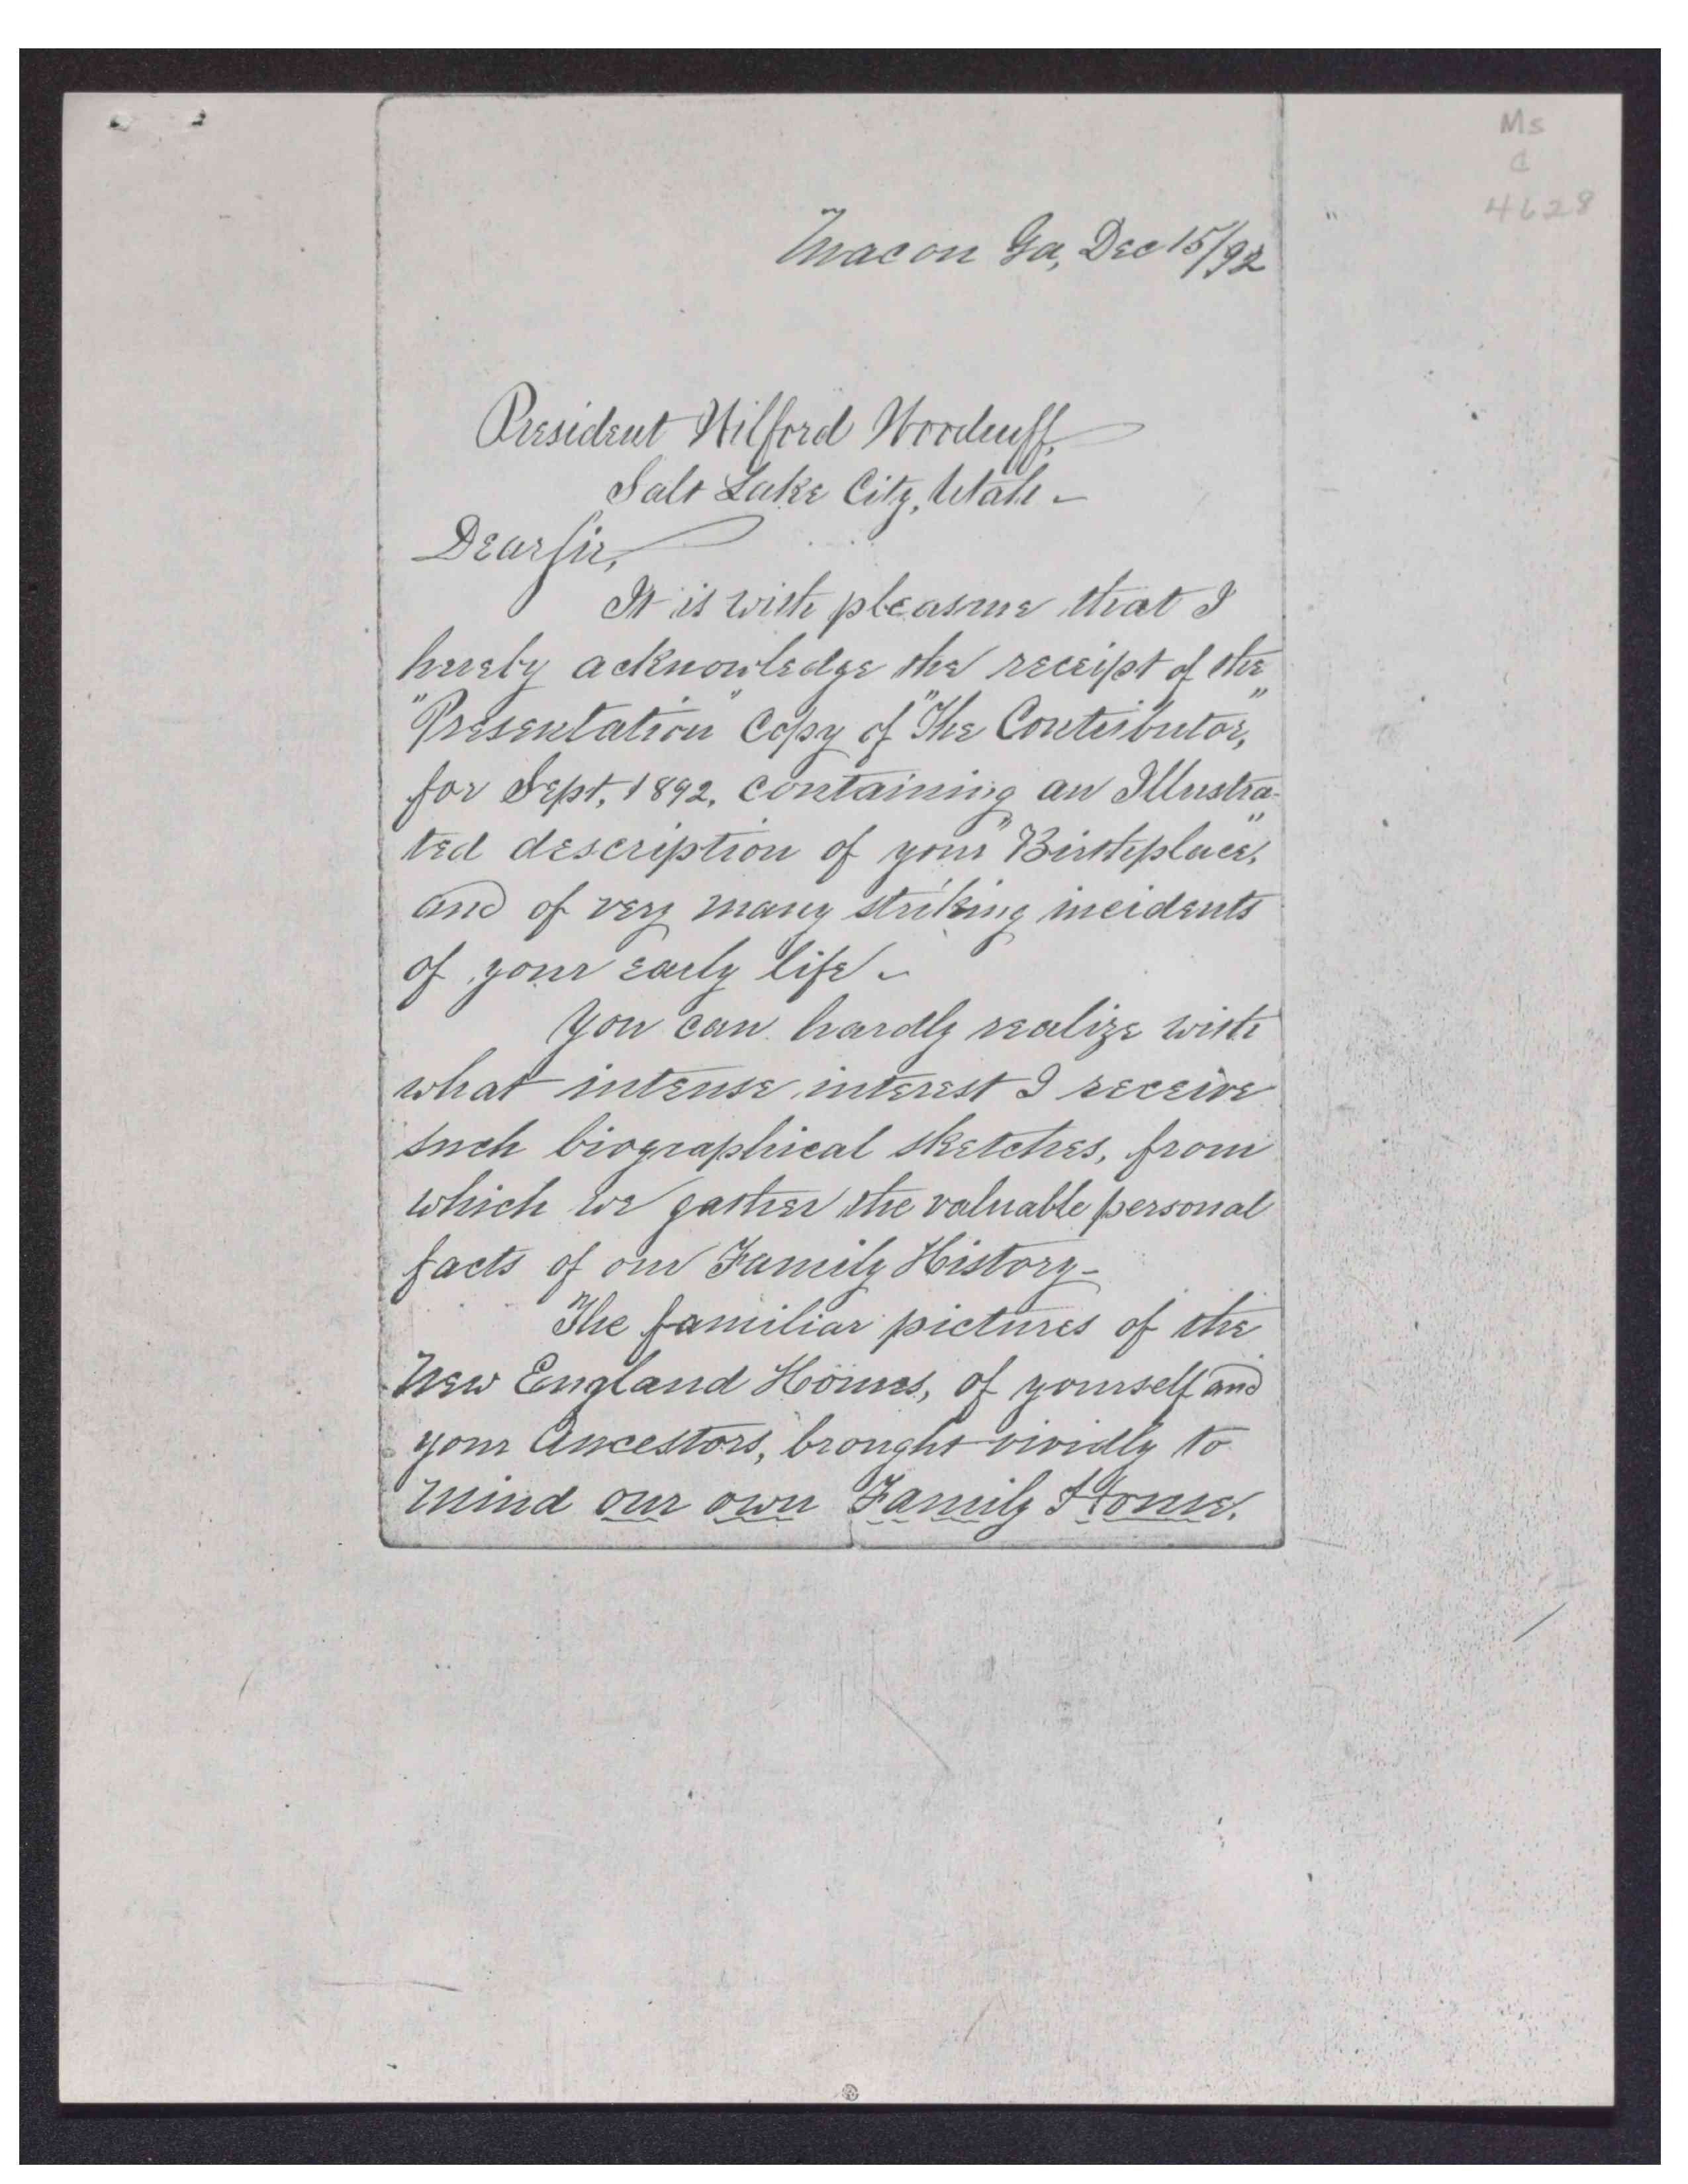 Ms
d
4628
Macon Ga, Dec 15/92
President Wilford Woodruff,
Salt Lake City, Utah -
Dear Sir,
It is with pleasure that I
hereby acknowledge the receipt of the
"Presentation" Copy of "The Contributor,"
for Sept, 1892, containing an Illustra-
ted description of your "Birthplace",
and of very many striking incidents
of your early life -
You can hardly realize with
what intense interest I receive
such biographical sketches, from
which we gather the valuable personal
facts of our Family History -
The familiar pictures of the
New England Homes, of yourself and
your Ancestors, brought vividly to
mind our own Family Home.